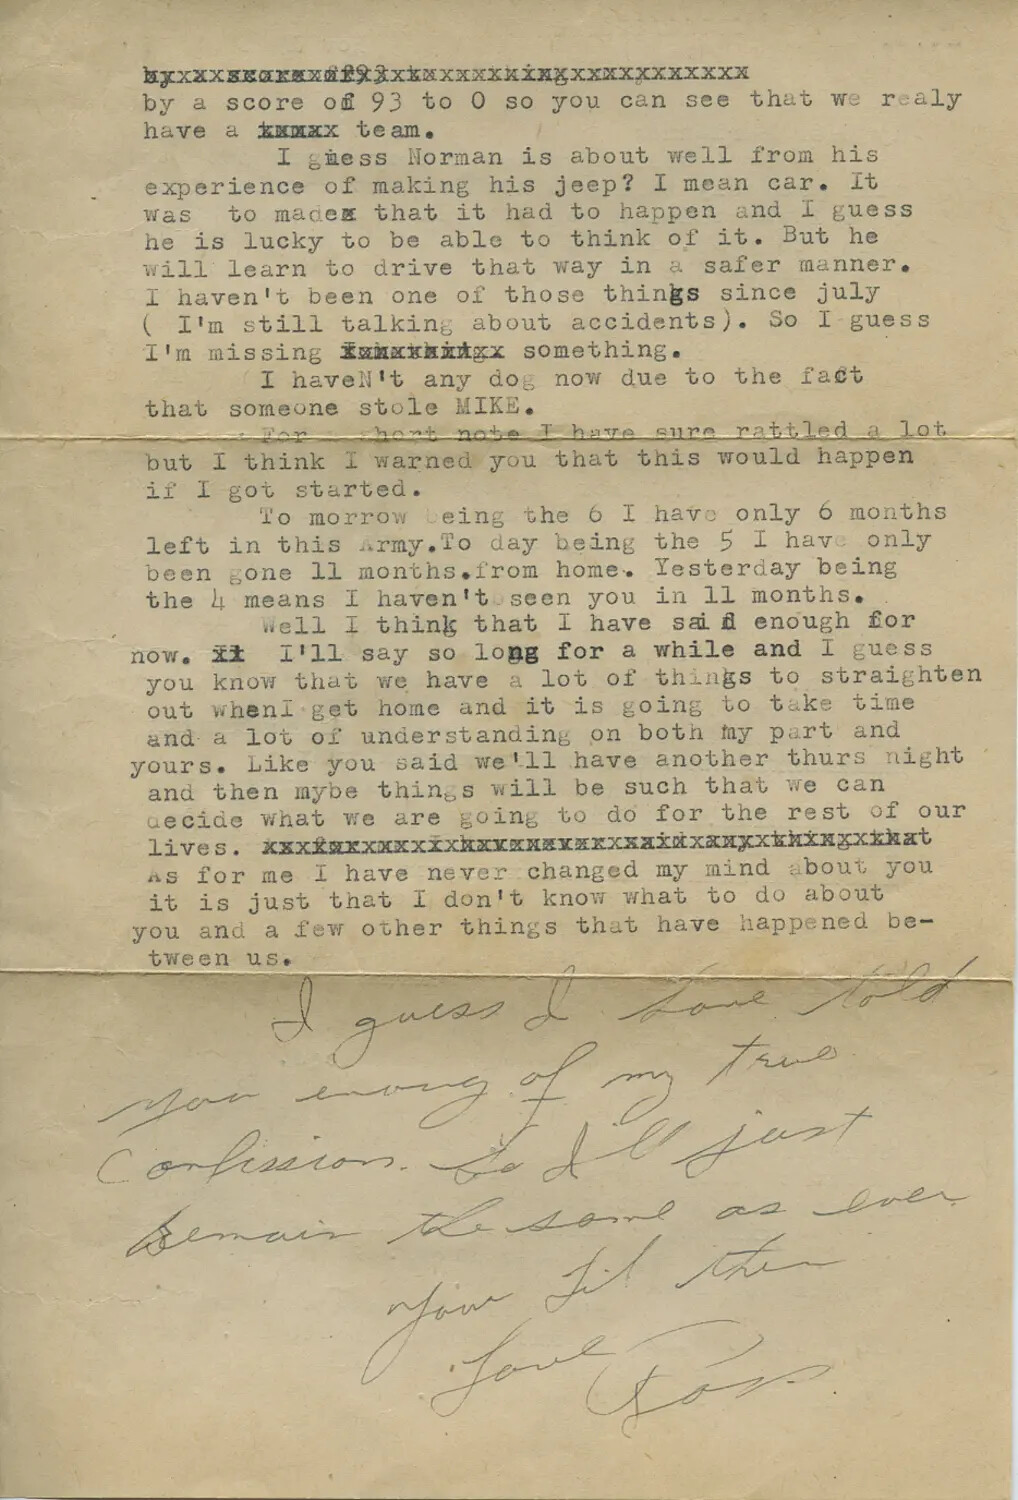 by a score of 93 to 0 so you can see that we realy
have a team.
I guess Norman is about well from his
experience of making his jeep? I mean car. It
was  to made that it had to happen and I guess
he is lucky to be able to think of it. But he
will learn to drive that way in a safer manner.
I haven't been one of those things since july
( I'm still talking about accidents). So I guess
I'm missing something.
I haveN't any dog now due to the fact
that someone stole MIKE.
For short note I have sure rattled a lot
but I think I warned you that this would happen
if I got started.
To morrow being the 6 I have only 6 months
left in this Army.To day being the 5 I have only
been gone 11 months.from home. Yesterday being
the 4 means I haven't seen you in 11 months.
Well I think that I have said enough for
now. I'll say so long for a while and I guess
you know that we have a lot of things to straighten
out whenI get home and it is going to take time
and a lot of understanding on both my part and
yours. Like you said we'll have another thurs night
and then mybe things will be such that we can
decide what we are going to do for the rest of our
lives.
As for me I have never changed my mind about you
it is just that I don't know what to do about
you and a few other things that have happened be-
tween us.
I guess I have told
you enoug of my true
Confission. So I'll just
Remain the same as ever
Your Til then
Love Ross